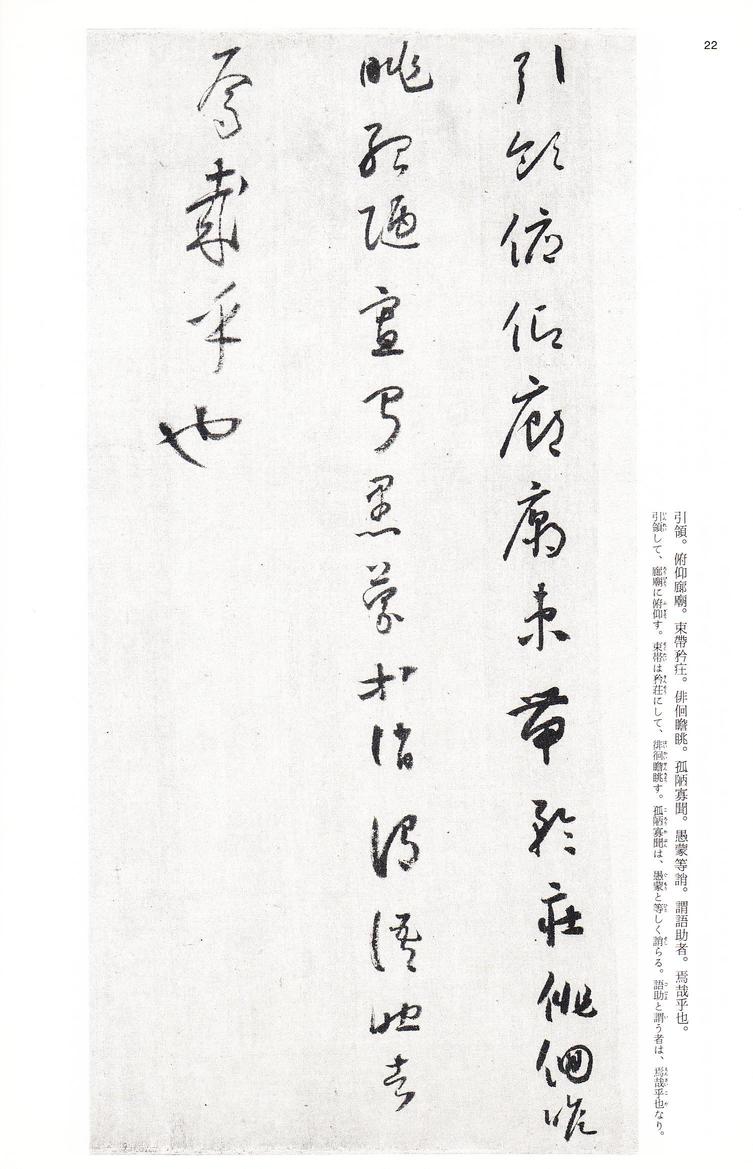 22
引領。俯仰廊廟。束帶矜庄。俳佪瞻眺。孤陋寡聞。愚蒙等誚。謂語助者。焉哉乎也。
引領して、廊廟に俯仰す。束帯は矜荘にして、徘徊瞻眺す。孤陋寡聞は、愚蒙と等しく誚らる。語助と謂う者は、焉哉乎也なり。
引領俯仰廊廟束帶矜庄俳佪瞻
眺孤陋寡聞愚蒙等誚謂語助者
焉哉乎也